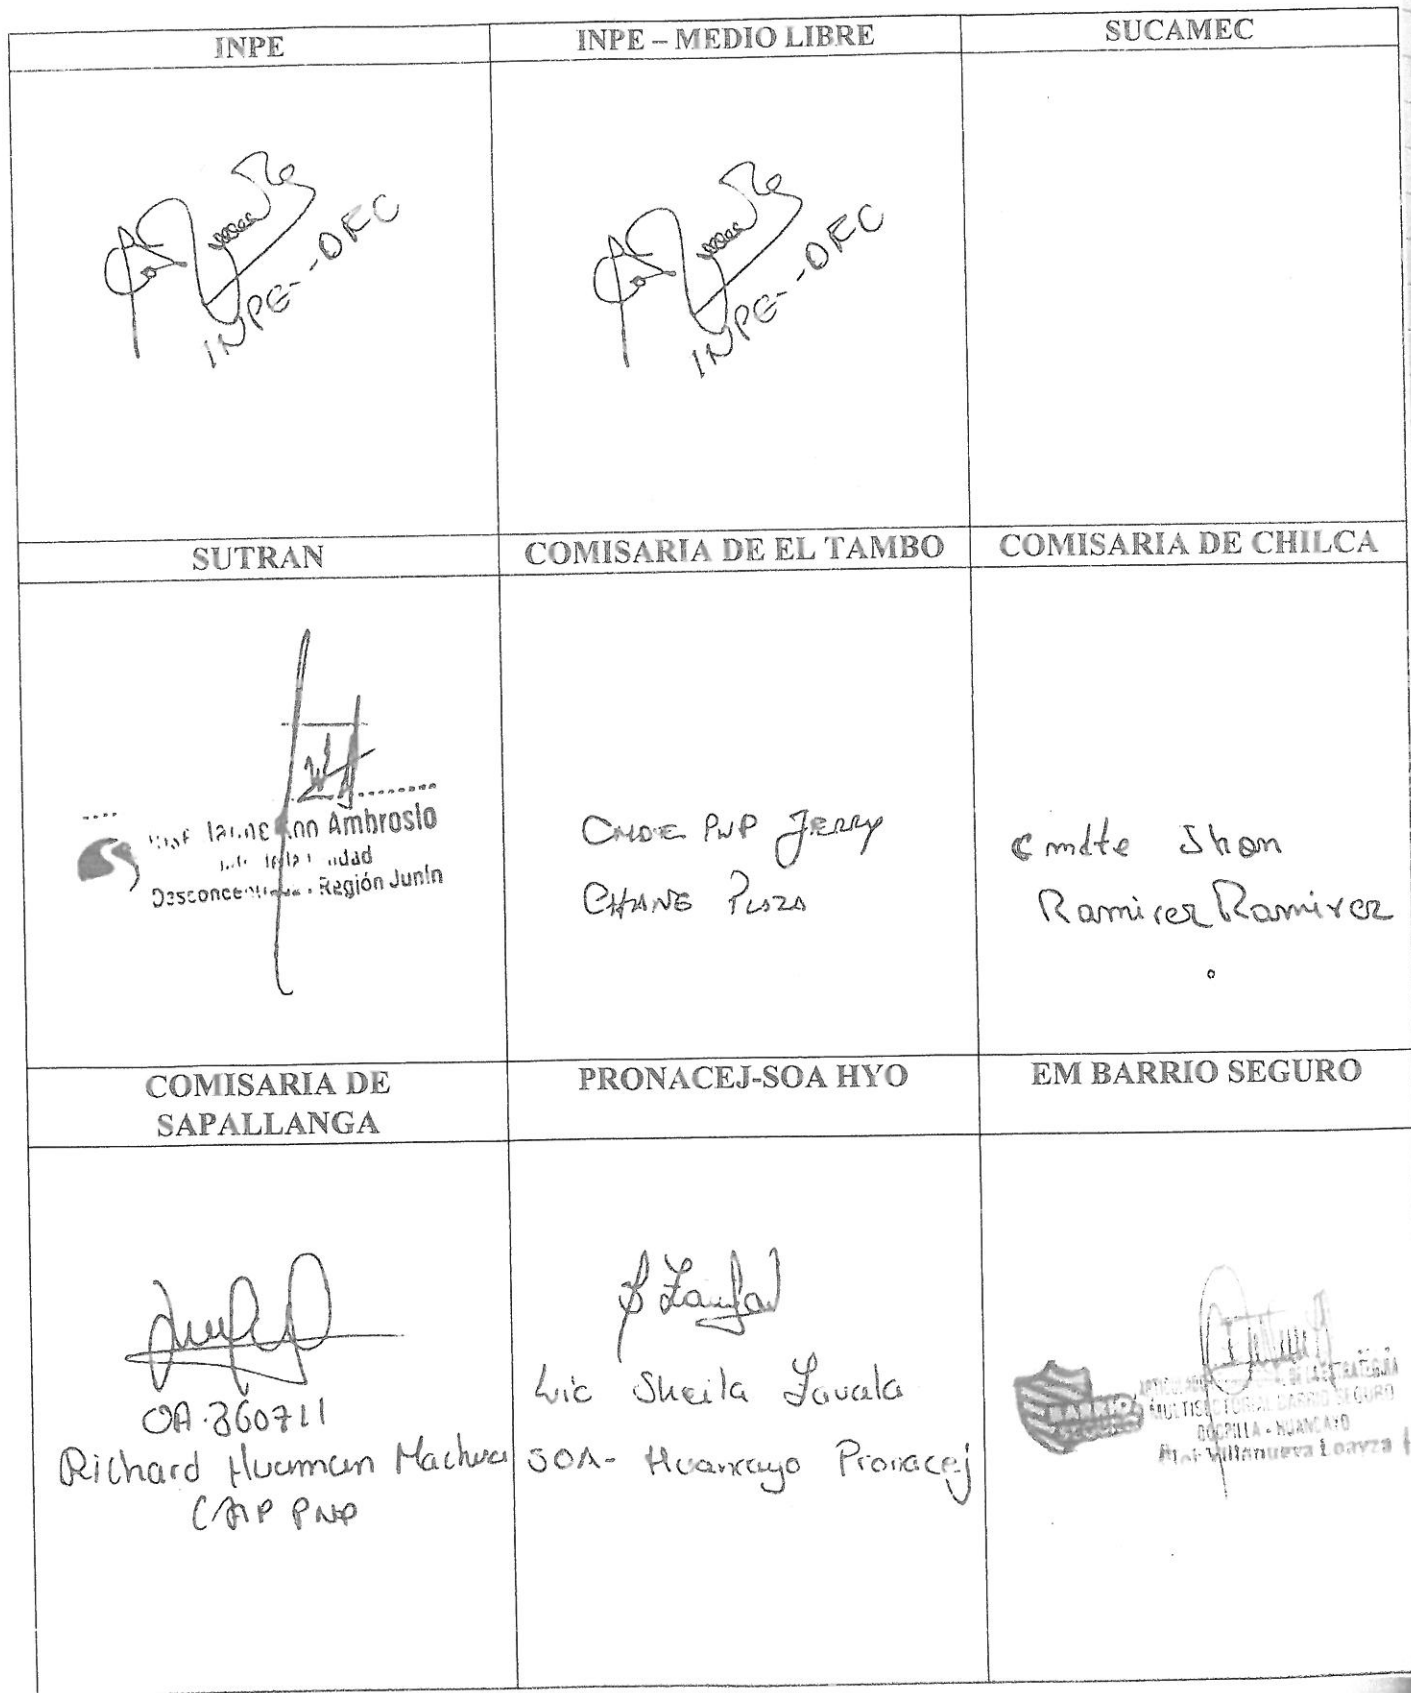 INPE
INPE – MEDIO LIBRE
SUCAMEC
INPE--OFC
INPE--OFC
SUTRAN
COMISARIA DE EL TAMBO
COMISARIA DE CHILCA
Ambrosio
Región Junín
CMDE PNP JERRY
CHANG PLAZA
Cmdte Jhon
Ramirez Ramirez
COMISARIA DE
SAPALLANGA
PRONACEJ-SOA HYO
EM BARRIO SEGURO
OA.360711
Richard Huaman
CAP PNP
Lic Sheila Zavala
SOA- Huancayo Pronacej
BARRIO
SEGURO
DE LA ESTRATEGIA
MULTISECTORIAL BARRIO SEGURO
- HUANCAYO
Villanueva Loayza